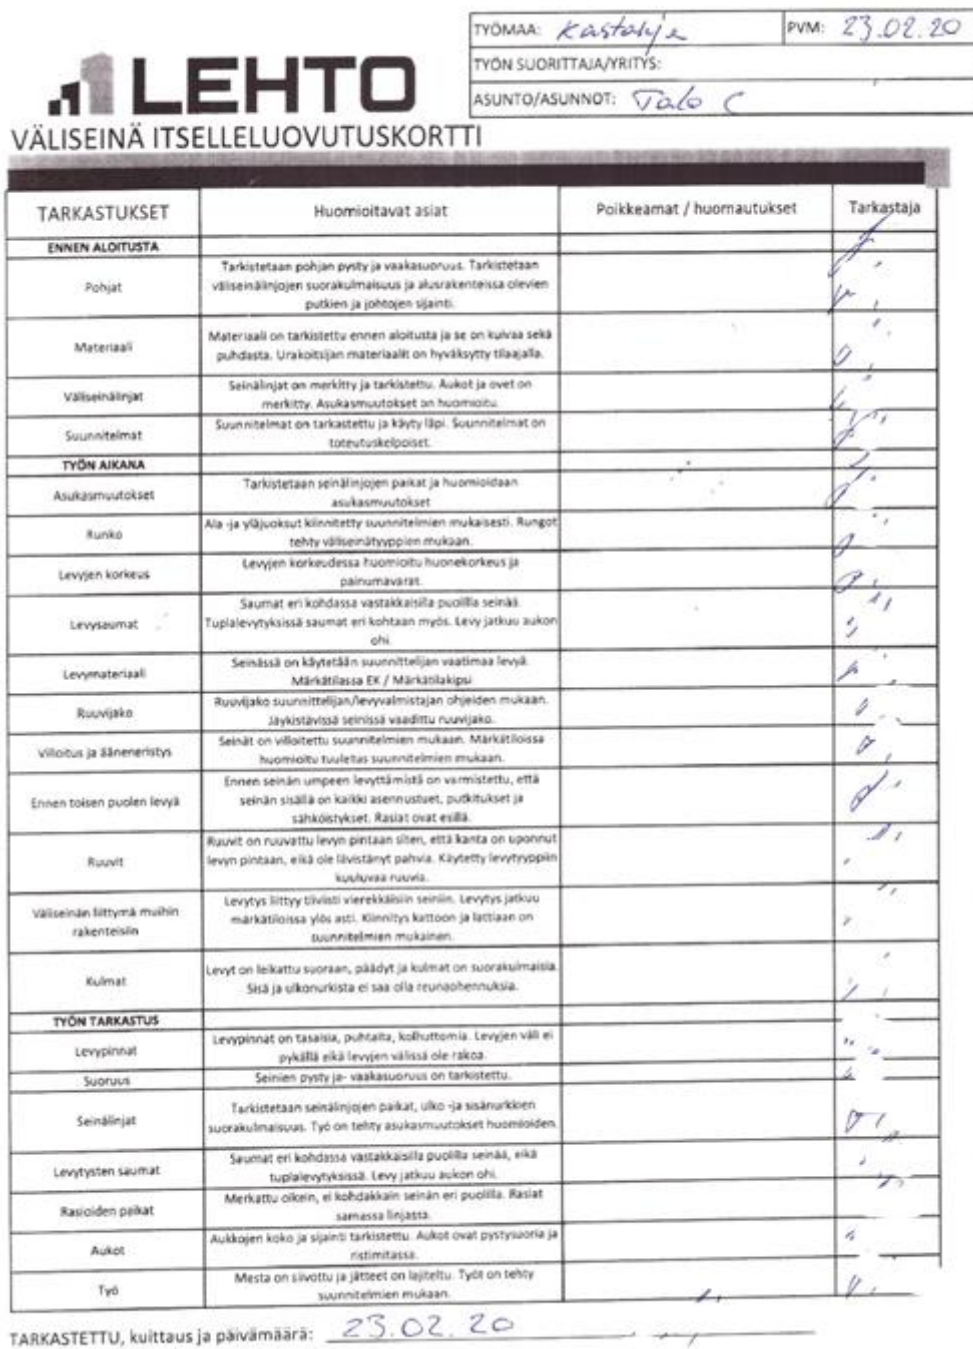 TYÖMAA: Kastalje PVM: 23.02.20
TYÖN SUORITTAJA/YRITYS:
ASUNTO/ASUNNOT: Talo C
LEHTO
VÄLISEINÄ ITSELLELUOVUTUSKORTTI
TARKASTUKSET Huomioitavat asiat Poikkeamat / huomautukset Tarkastaja
ENNEN ALOITUSTA
Pohjat
Tarkistetaan pohjan pysty ja vaakasuoruus. Tarkistetaan
väliseinälinjojen suorakulmaisuus ja alusrakenteissa olevien
putkien ja johtojen sijainti.
Materiaali
Materiaali on tarkistettu ennen aloitusta ja se on kuivaa sekä
puhdasta. Urakoitsijan materiaalit on hyväksytty tilaajalla.
Väliseinälinjat
Seinälinjat on merkitty ja tarkistettu. Aukot ja ovet on
merkitty. Asukasmuutokset on huomioitu.
Suunnitelmat
Suunnitelmat on tarkastettu ja käyty läpi. Suunnitelmat on
toteutuskelpoiset.
TYÖN AIKANA
Asukasmuutokset
Tarkistetaan seinälinjojen paikat ja huomioidaan
asukasmuutokset
Runko
Ala -ja yläjuoksut kiinnitetty suunnitelmien mukaisesti. Rungot
tehty väliseinätyyppien mukaan.
Levyjen korkeus
Levyjen korkeudessa huomioitu huonekorkeus ja
painumavarat.
Levysaumat
Saumat eri kohdassa vastakkaisilla puolilla seinää.
Tuplalevytyksissä saumat eri kohtaan myös. Levy jatkuu aukon
ohi.
Levymateriaali
Seinässä on käytetään suunnittelijan vaatimaa levyä.
Märkätilassa EK / Märkätilakipsi
Ruuvijako
Ruuvijako suunnittelijan/levyvalmistajan ohjeiden mukaan.
Jäykistävissä seinissä vaadittu ruuvijako.
Villoitus ja ääneneristys
Seinät on villoitettu suunnitelmien mukaan. Märkätiloissa
huomioitu tuuletus suunnitelmien mukaan.
Ennen toisen puolen levyä
Ennen seinän umpeen levyttämistä on varmistettu, että
seinän sisällä on kaikki asennustuet, putkitukset ja
sähköistykset. Rasiat ovat esillä.
Ruuvit
Ruuvit on ruuvattu levyn pintaan siten, että kanta on uponnut
levyn pintaan, eikä ole lävistänyt pahvia. Käytetty levytyyppiin
kuuluvaa ruuvia.
Väliseinän liittymä muihin
rakenteisiin
Levytys liittyy tiiviisti vierekkäisiin seiniin. Levytys jatkuu
märkätiloissa ylös asti. Kiinnitys kattoon ja lattiaan on
suunnitelmien mukainen.
Kulmat
Levyt on leikattu suoraan, päädyt ja kulmat on suorakulmaisia.
Sisä ja ulkonurkista ei saa olla reunaohennuksia.
TYÖN TARKASTUS
Levypinnat
Levypinnat on tasaisia, puhtaita, kolhuttomia. Levyjen väli ei
pykällä eikä levyjen välissä ole rakoa.
Suoruus
Seinien pysty ja- vaakasuoruus on tarkistettu.
Seinälinjat
Tarkistetaan seinälinjojen paikat, ulko -ja sisänurkkien
suorakulmaisuus. Työ on tehty asukasmuutokset huomioiden.
Levytysten saumat
Saumat eri kohdassa vastakkaisilla puolilla seinää, eikä
tuplalevytyksissä. Levy jatkuu aukon ohi.
Rasioiden paikat
Merkattu oikein, ei kohdakkain seinän eri puolilla. Rasiat
samassa linjasta.
Aukot
Aukkojen koko ja sijainti tarkistettu. Aukot ovat pystysuoria ja
ristimitassa.
Työ
Mesta on siivottu ja jätteet on lajiteltu. Työt on tehty
suunnitelmien mukaan.
TARKASTETTU, kuittaus ja päivämäärä: 23.02.20